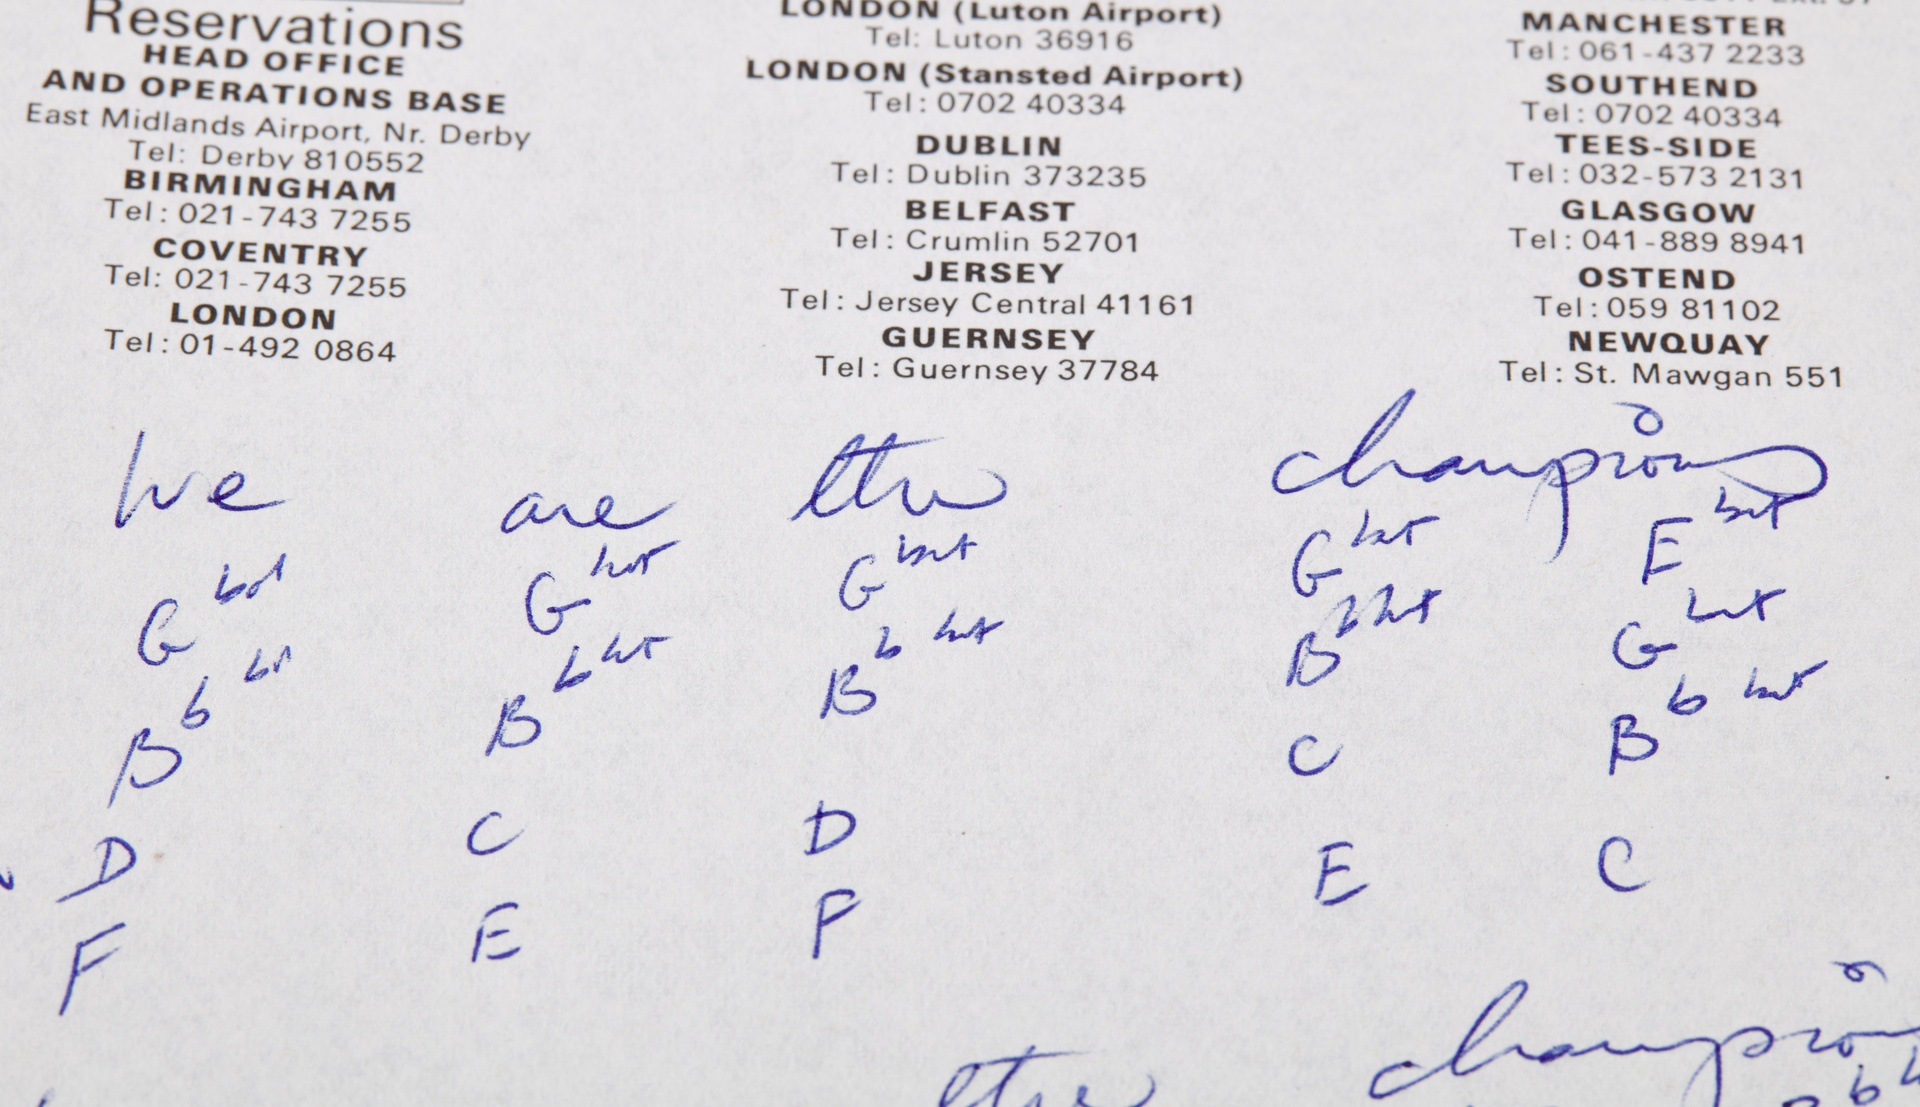 Reservations
HEAD OFFICE
AND OPERATIONS BASE
East Midlands Airport, Nr. Derby
Tel: Derby 810552
BIRMINGHAM
Tel: 021-743 7255
COVENTRY
Tel: 021-743 7255
LONDON
Tel: 01-492 0864
LONDON (Luton Airport)
Tel: Luton 36916
LONDON (Stansted Airport)
Tel: 0702 40334
DUBLIN
Tel: Dublin 373235
BELFAST
Tel: Crumlin 52701
JERSEY
Tel: Jersey Central 41161
GUERNSEY
Tel: Guernsey 37784
MANCHESTER
Tel: 061-437 2233
SOUTHEND
Tel: 0702 40334
TEES-SIDE
Tel: 032-573 2131
GLASGOW
Tel: 041-889 8941
OSTEND
Tel: 059 81102
NEWQUAY
Tel: St. Mawgan 551
We are the champions
G G G G E
B b B b B b B b G
D C D C B b
F E F E C
the champion